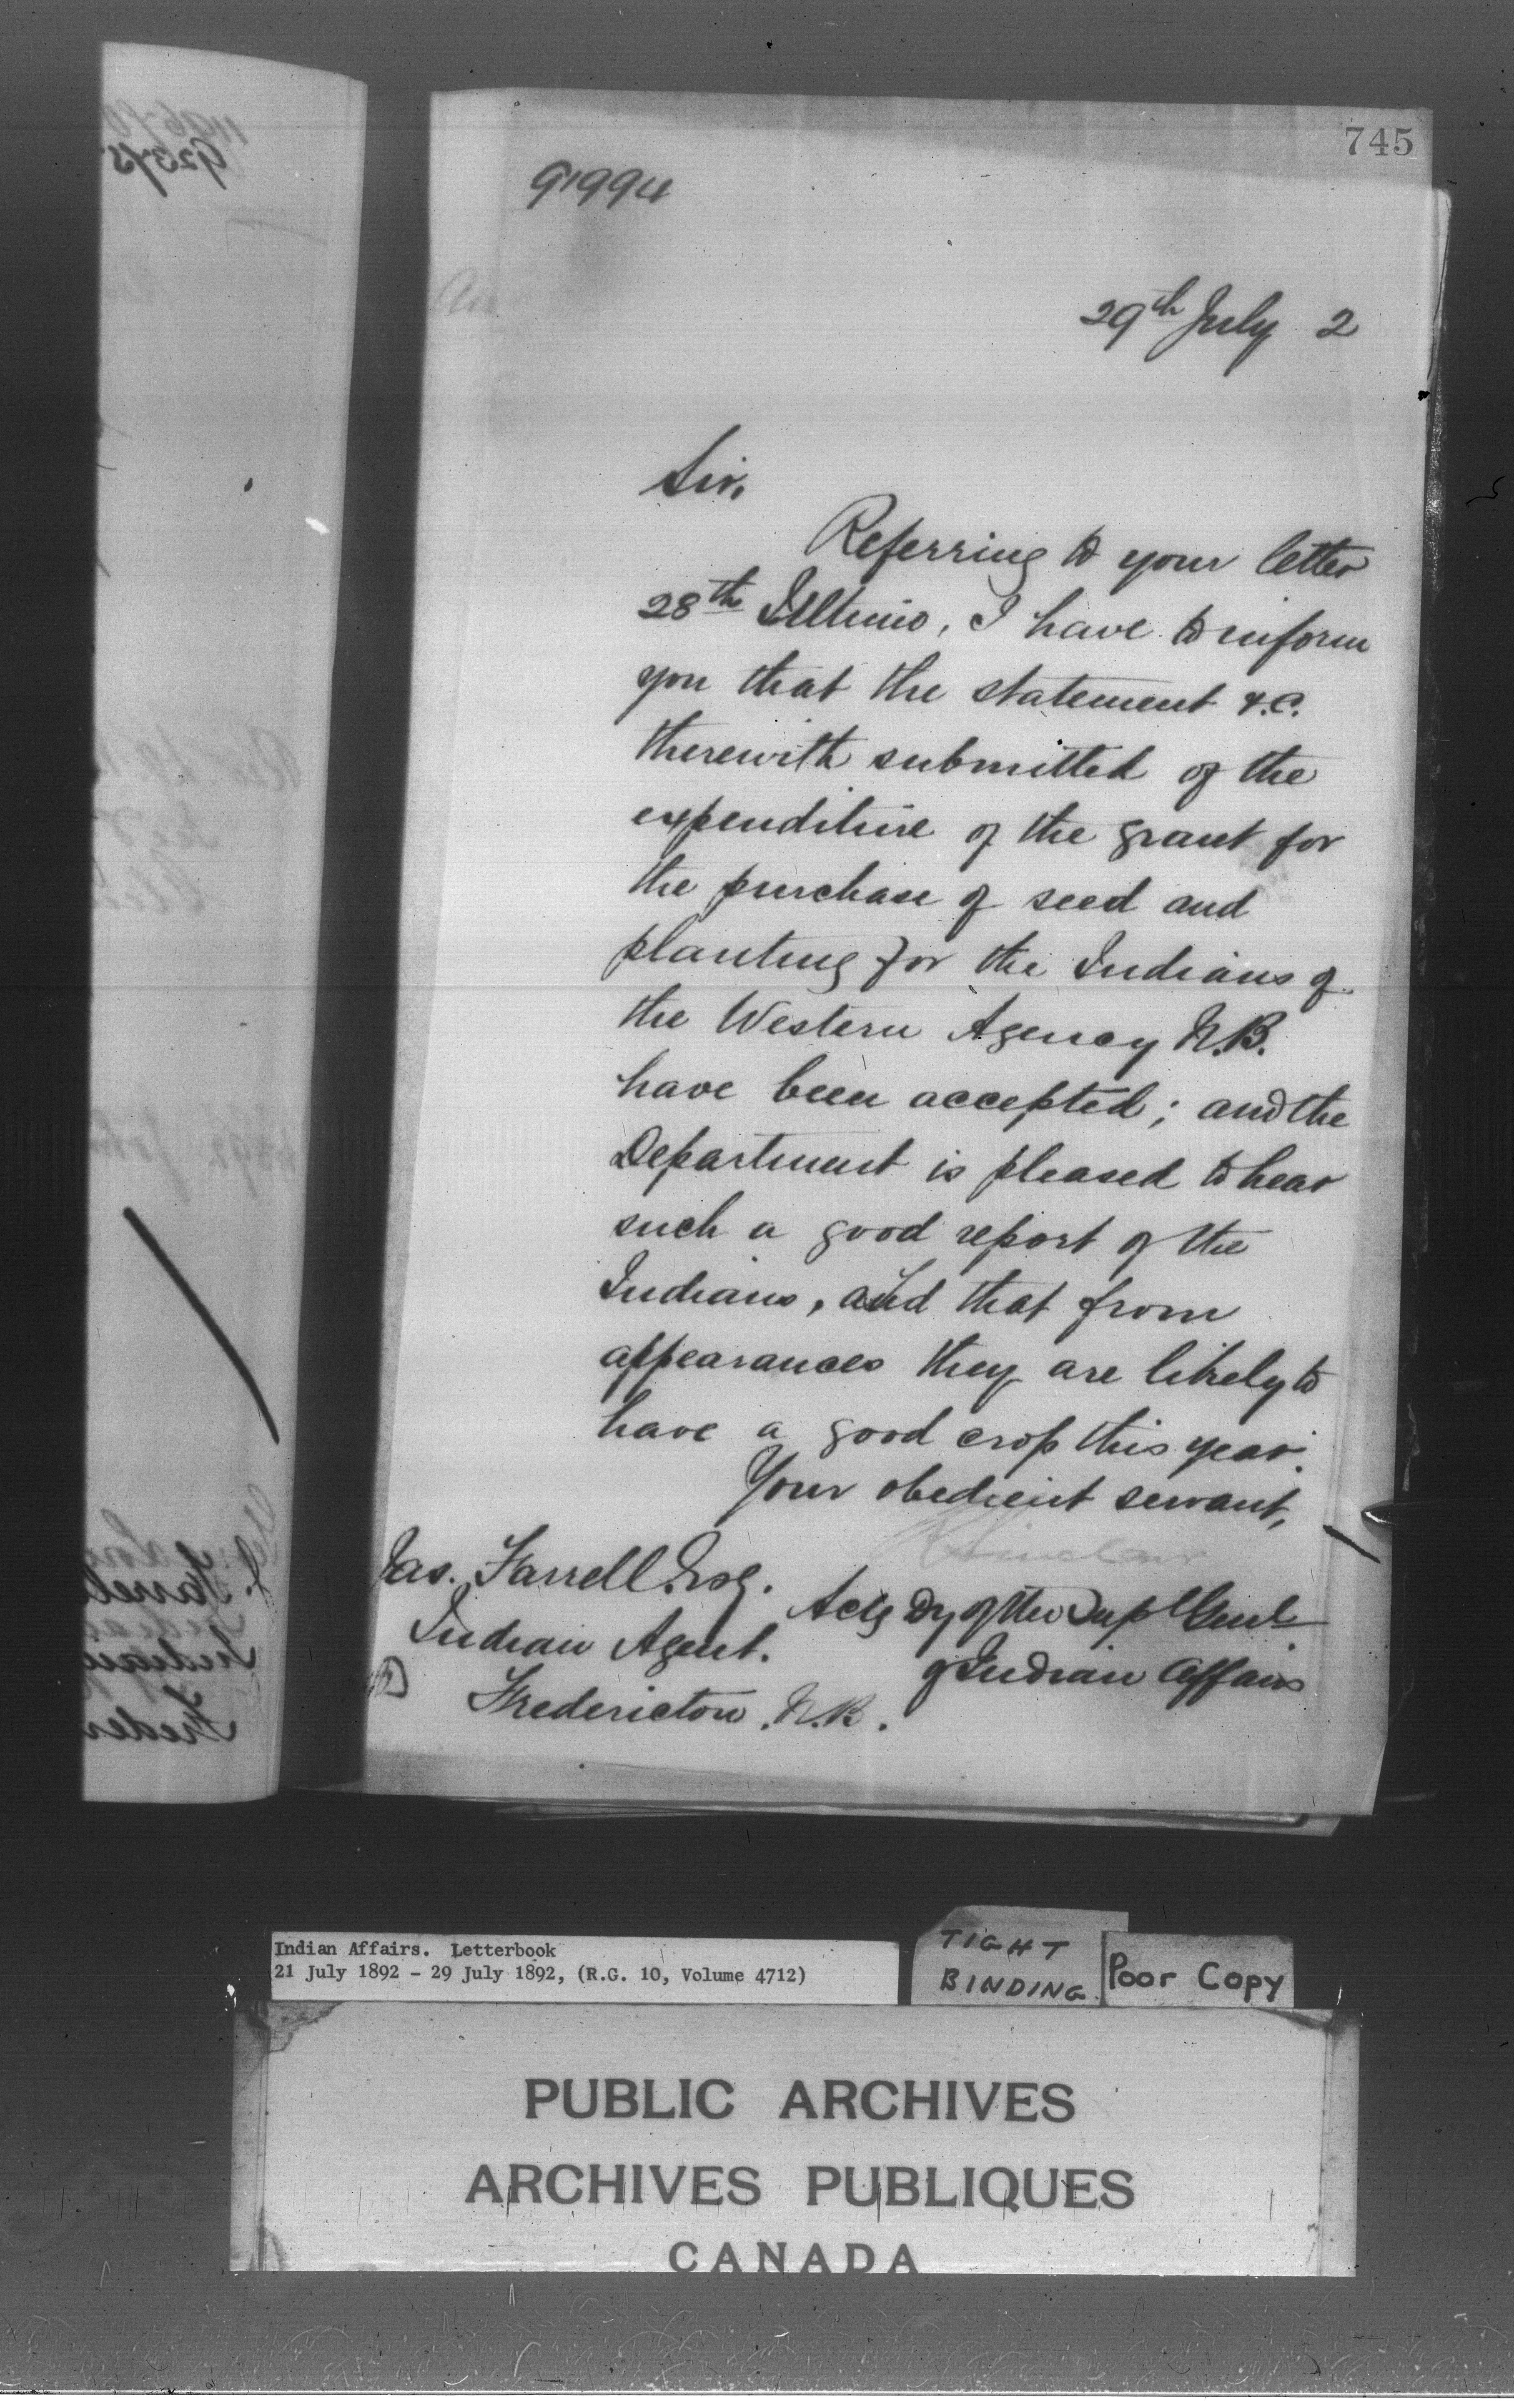 745
91994
29th July 2
Sir,
Referring to your letter
28th Ultimo, I have to inform
you that the statement &.c.
therewith submitted of the
expenditure of the grant for
the purchase of seed and
planting for the Indians of
the Western Agency N.B.
have been accepted; and the
Department is pleased to hear
such a good report of the
Indians, and that from
appearances they are likely to
have a good crop this year.
Your obedient servant,
Sinclair
Jas. Farrell Esq.
Actg Dy of the Supt Genl
Indian Agent.
of Indian Affairs
Fredericton. N.B.
Indian Affairs. Letterbook
21 July 1892 - 29 July 1892, (R.G. 10, Volume 4712)
TIGHT
BINDING
Poor Copy
PUBLIC ARCHIVES
ARCHIVES PUBLIQUES
CANADA